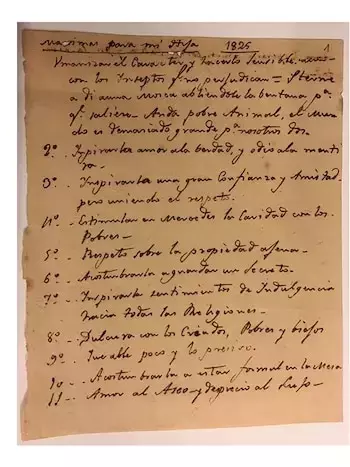 Maximas para mi Hija 1825 1
Umanizar el Caracter y hacerlo sensible aun
con los Insectos q.e no perjudican = Sterne
a di una Mosca abriendole la bentana p.a
q.e saliera. Anda pobre Animal, el Mun
do es demaciado grande p.a nosotros dos.
2º - Inspirarla amor a la berdad, y odio a la menti
ra.
3º - Inspirarla una gran Confianza y Amistad
pero uniendo el respeto.
4º - Estimular en Mercedes la Caridad con los
Pobres -
5º - Respeto sobre la propiedad agena -
6º - Acostumbrarla a guardar un Secreto.
7º - Inspirarla sentimientos de Indulgencia
hacia todas las Religiones -
8º - Dulzura con los Criados, Pobres y biejos
9º - Que able poco y lo preciso.
10 - Acostumbrarla a estar formal en la Mesa
11 - Amor al Aseo y desprecio al Lujo -